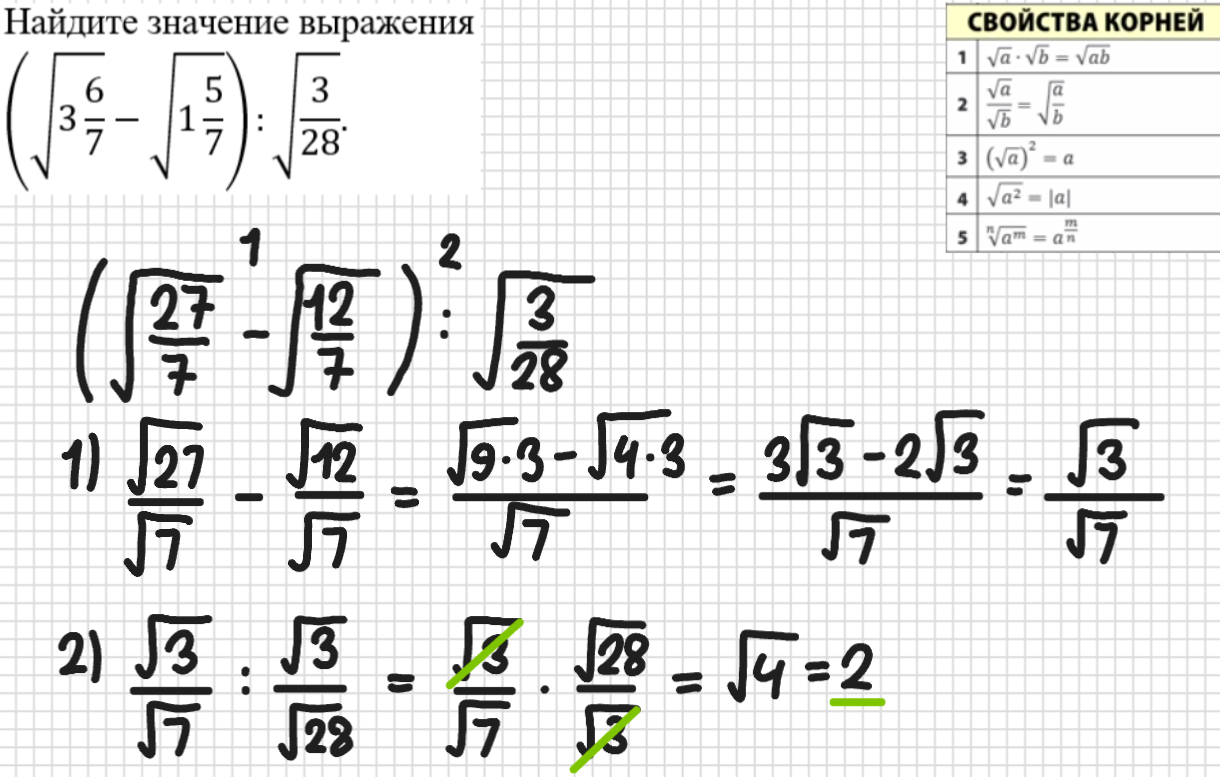 Найдите значение выражения
(√(3 6/7) − √(1 5/7)) : √(3/28).
СВОЙСТВА КОРНЕЙ
1 √a · √b = √ab
2 √a/√b = √(a/b)
3 (√a)² = a
4 √a² = |a|
5 ⁿ√aᵐ = a^(m/n)
1 2
(√(27/7) − √(12/7)) : √(3/28)
1) √27/√7 − √12/√7 = (√9·3 − √4·3)/√7 = (3√3 − 2√3)/√7 = √3/√7
2) √3/√7 : √3/√28 = √3/√7 · √28/√3 = √4 = 2